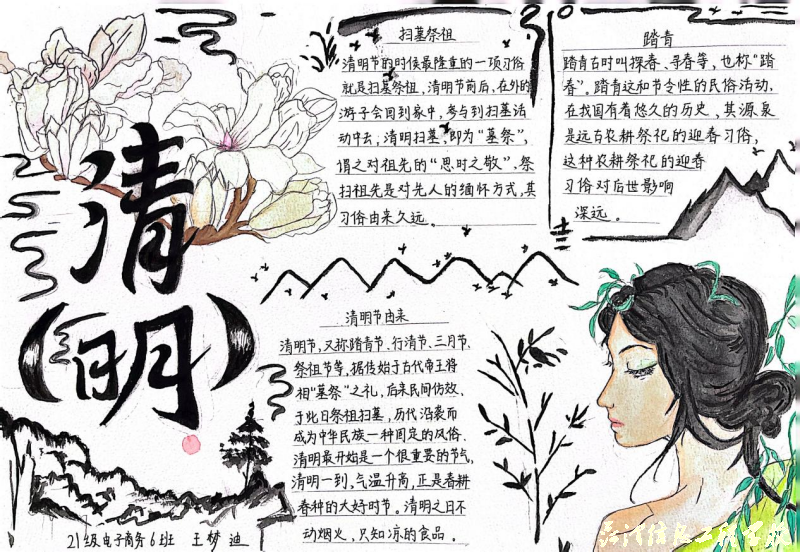 清明
扫墓祭祖
清明节的时候最隆重的一项习俗
就是扫墓祭祖，清明节前后，在外的
游子会回到家中，参与到扫墓活
动中去，清明扫墓，即为“墓祭”，
谓之对祖先的“思时之敬”，祭
扫祖先是对先人的缅怀方式，其
习俗由来久远。
踏青
踏青古时叫探春、寻春等，也称“踏
春”。踏青这和节令性的民俗活动，
在我国有着悠久的历史、其源泉
是远古农耕祭祀的迎春习俗，
这种农耕祭祀的迎春
习俗对后世影响
深远。
清明节由来
清明节，又称踏青节、行清节、三月节、
祭祖节等，据传始于古代帝王将
相“墓祭”之礼，后来民间仿效、
于此日祭祖扫墓，历代沿袭而
成为中华民族一种固定的风俗.
清明最开始是一个很重要的节气，
清明一到，气温升高，正是春耕
春种的大好时节。清明之日不
动烟火，只知凉的食品。
21级电子商务6班 王梦迪